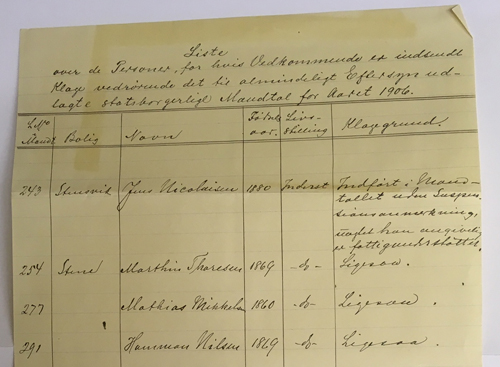 Liste
over de Personer, for hvis Vedkommende er indsendt
Klage vedrørende det til almindeligt Eftersyn ud-
lagte statsborgerlige Mandtal for Aaret 1906.
Mandt Bolig Navn Fødsels aar. Livs- stilling Klagegrund.
243 Stensvik Jens Nicolaisen 1880 Inderst Indført i Mand-
tallet uden Suspen-
sionsanmerkning,
uagtet han angivelig
er fattigunderstøttet.
254 Stene Marthin Thoresen 1869 -do- Ligesaa.
277 Mathias Mikkelsen 1860 -do- Ligesaa.
291 Hammon Nilsen 1869 -do- Ligesaa.